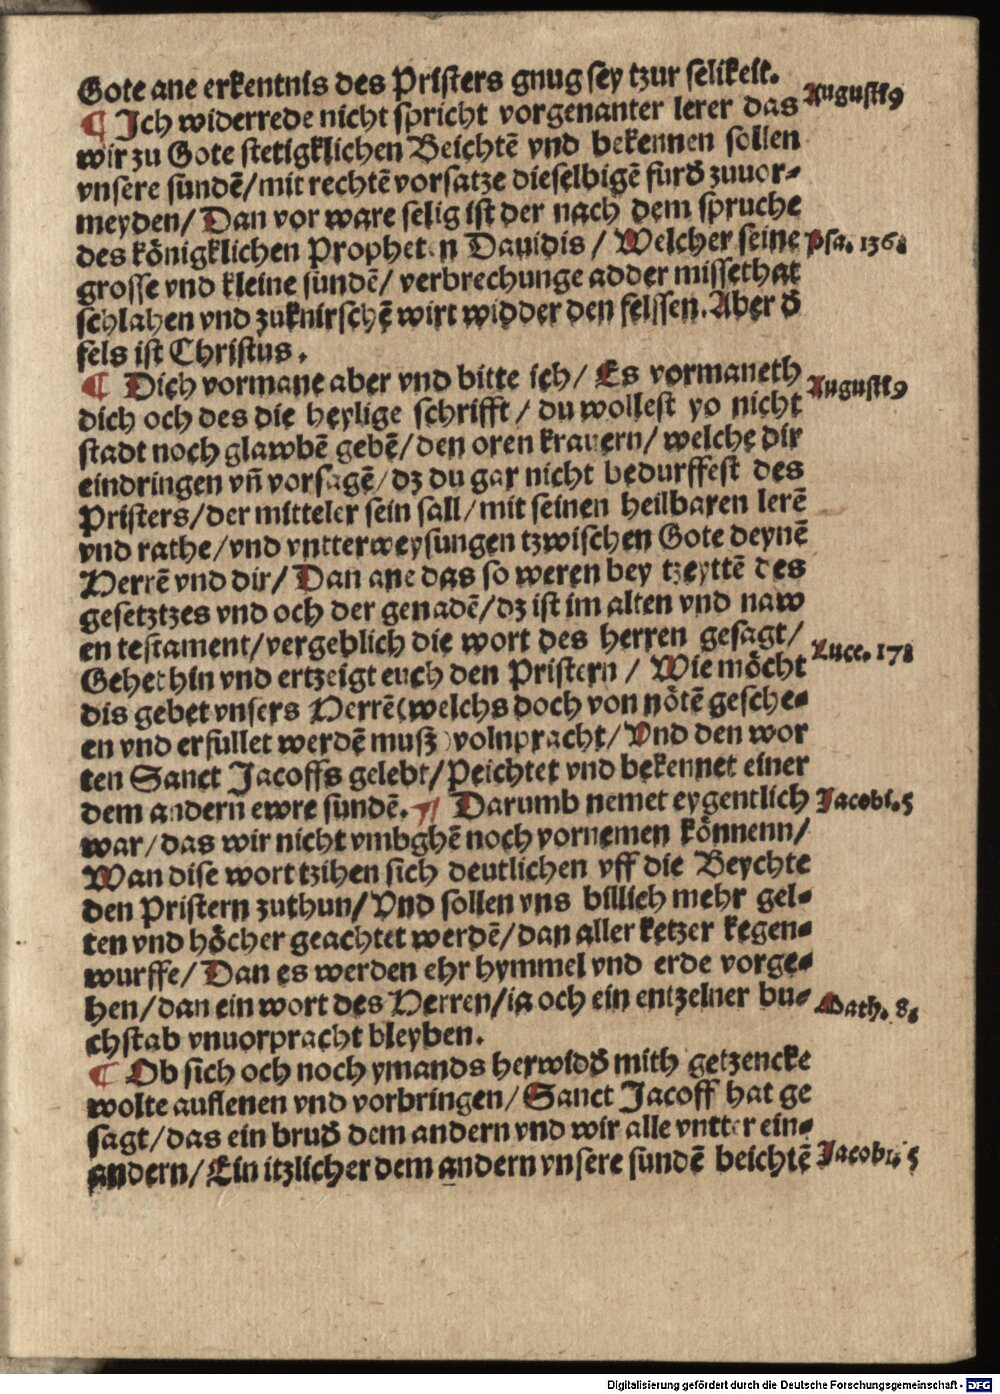 Gote ane erkentnis des Pristers gnug sey tzur selikeit.
¶ Ich widerrede nicht spricht vorgenanter lerer das Augusti9
wir zu Gote stetigklichen Beichtē vnd bekennen sollen
vnsere sundē/mit rechtē vorsatze dieselbigē furd̕ zuuor-
meyden/ Dan vor ware selig ist der nach dem spruche
des königklichen Propheten Dauidis / Welcher seine Psa. 136.
grosse vnd kleine sundē/ verbrechunge adder missethat
schlahen vnd zuknirschē wirt widder den felssen. Aber d̕
fels ist Christus.
¶ Dich vormane aber vnd bitte ich/ Es vormaneth Augusti9
dich och des die heylige schrifft / du wollest yo nicht
stadt noch glawbē gebē/den oren krauern/ welche dir
eindringen vn̄ vorsagē/dz du gar nicht bedurffest des
Pristers/der mitteler sein sall/mit seinen heilbaren lerē
vnd rathe/vnd vntterweysungen tzwischen Gote deynē
Herrē vnd dir/ Dan ane das so weren bey tzeyttē des
gesetztzes vnd och der genadē/dz ist im alten vnd naw
en testament/vergeblich die wort des herren gesagt/
Gehet hin vnd ertzeigt euch den Pristern / Wie möcht Luce. 17.
dis gebet vnsers Herrē(welchs doch von nötē gesche-
en vnd erfullet werdē muß)volnpracht/Vnd den wor
ten Sanct Jacoffs gelebt/Peichtet vnd bekennet einer
dem andern ewre sundē. ¶ Darumb nemet eygentlich Jacobi.5
war/das wir nicht vmbghē noch vornemen könnenn/
Wan dise wort tzihen sich deutlichen vff die Beychte
den Pristern zuthun/Vnd sollen vns billich mehr gel-
ten vnd höcher geachtet werdē/dan aller ketzer kegen-
wurffe/Dan es werden ehr hymmel vnd erde vorge-
hen/dan ein wort des Herren/ia och ein entzelner bu- Math. 8.
chstab vnuorpracht bleyben.
¶ Ob sich och noch ymands herwidd̕ mith getzencke
wolte auflenen vnd vorbringen/Sanct Jacoff hat ge
sagt/das ein brud̕ dem andern vnd wir alle vntter ein-
andern/Ein itzlicher dem andern vnsere sundē beichtē Jacobi. 5
Digitalisierung gefördert durch die Deutsche Forschungsgemeinschaft - DFG